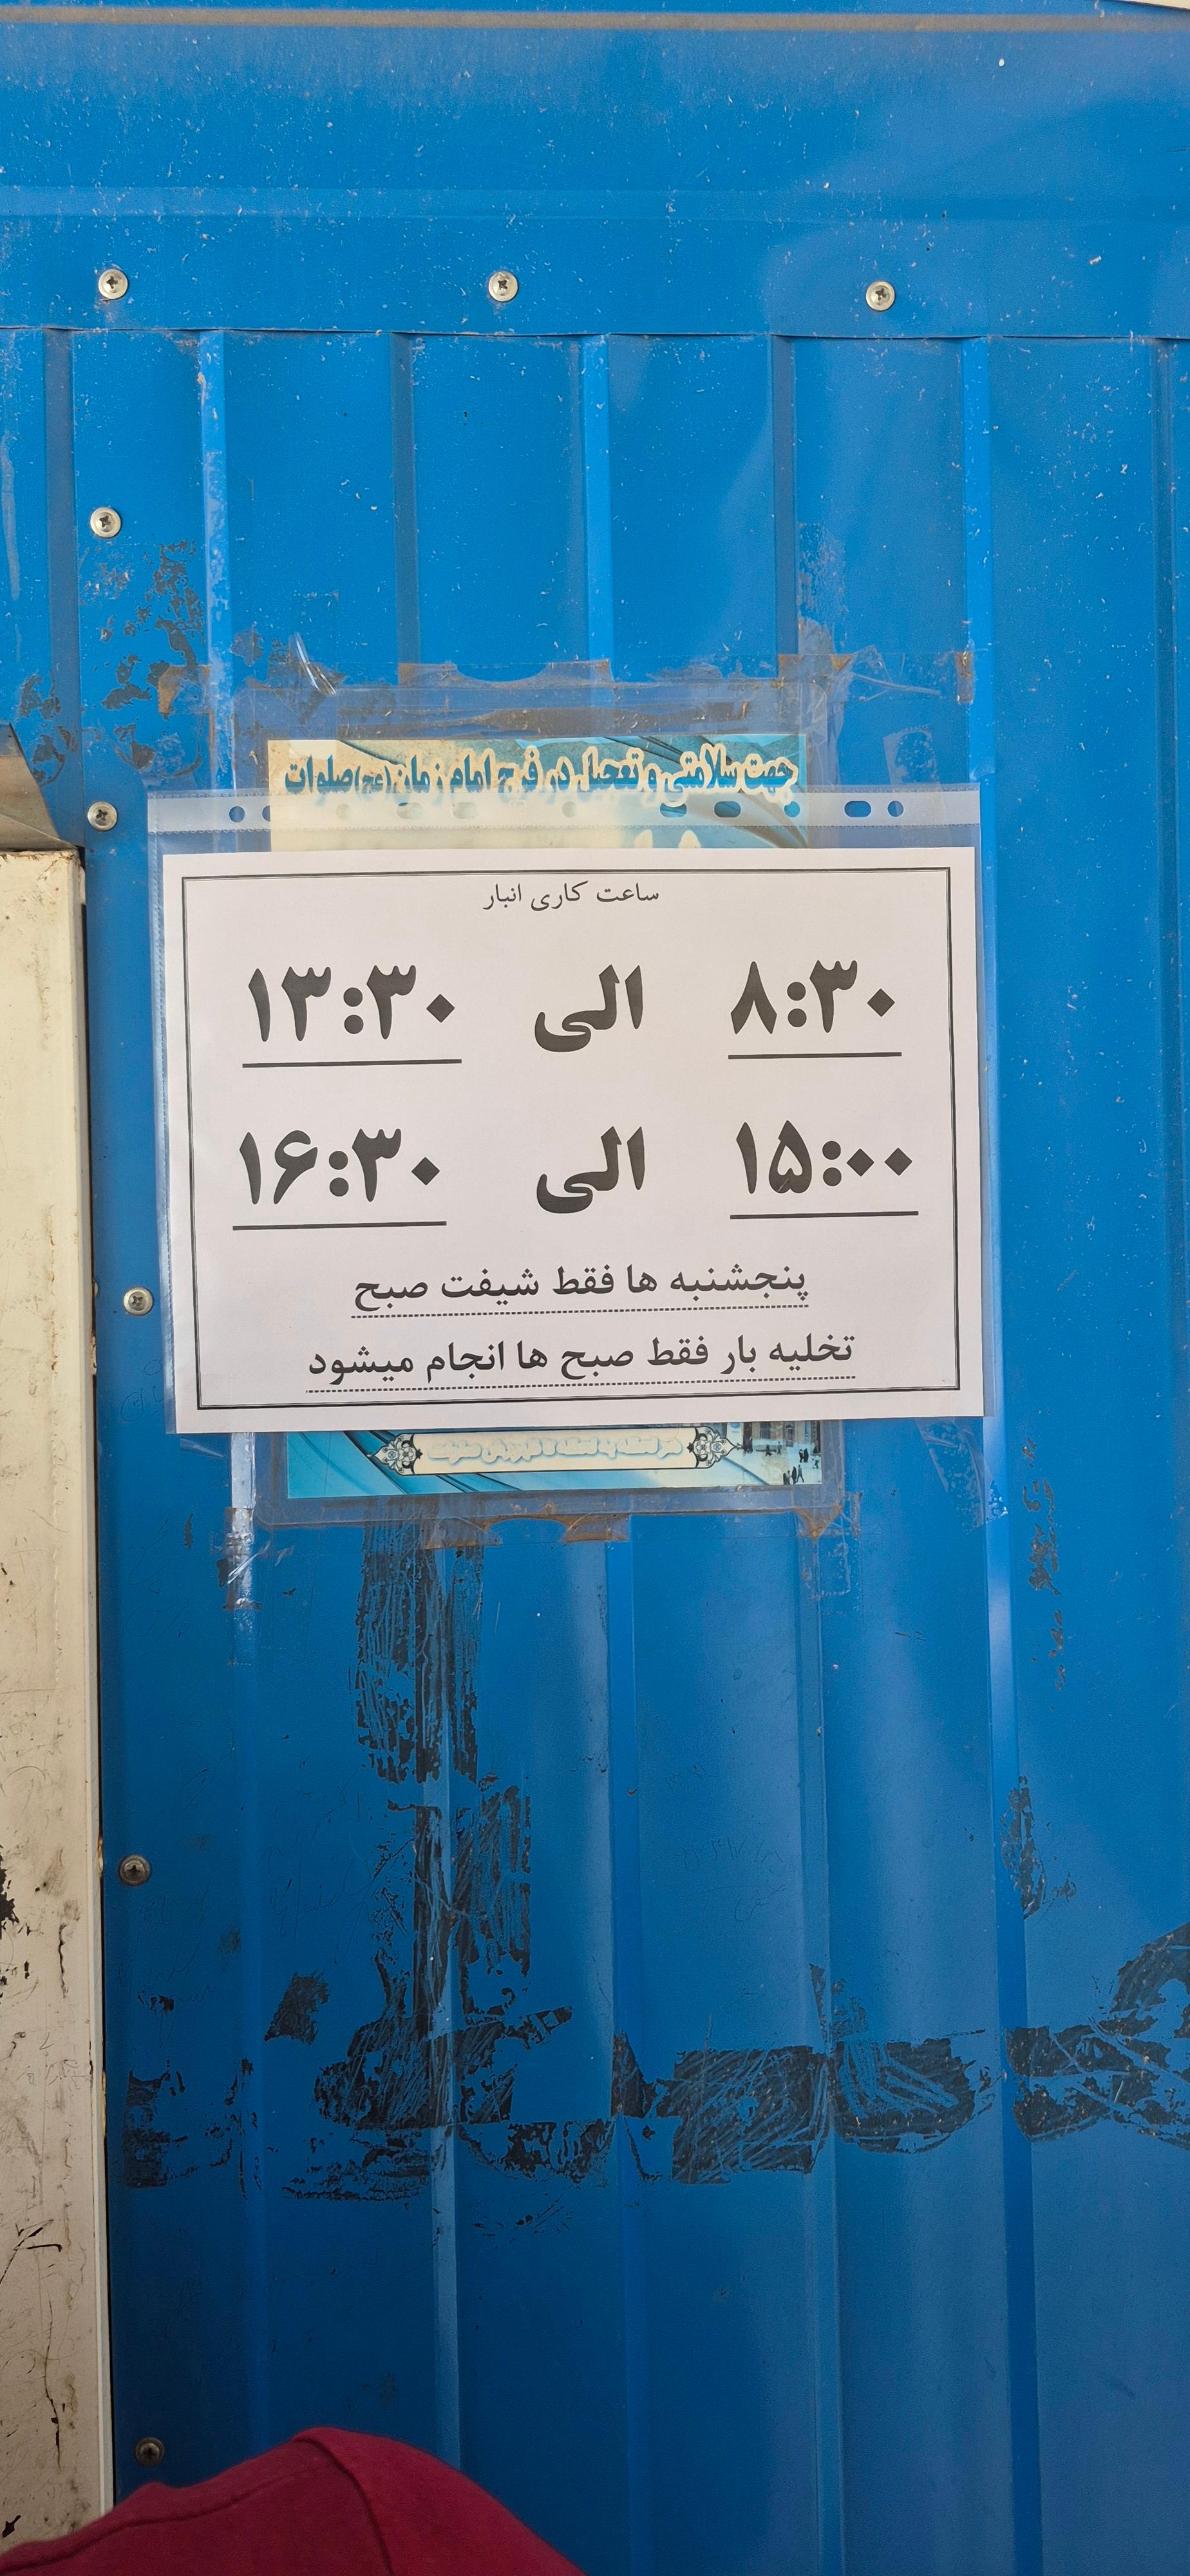 جهت سلامتی و تعجیل در فرج امام زمان (عج) صلوات
ساعت کاری انبار
۸:۳۰ الی ۱۳:۳۰
۱۵:۰۰ الی ۱۶:۳۰
پنجشنبه ها فقط شیفت صبح
تخلیه بار فقط صبح ها انجام میشود